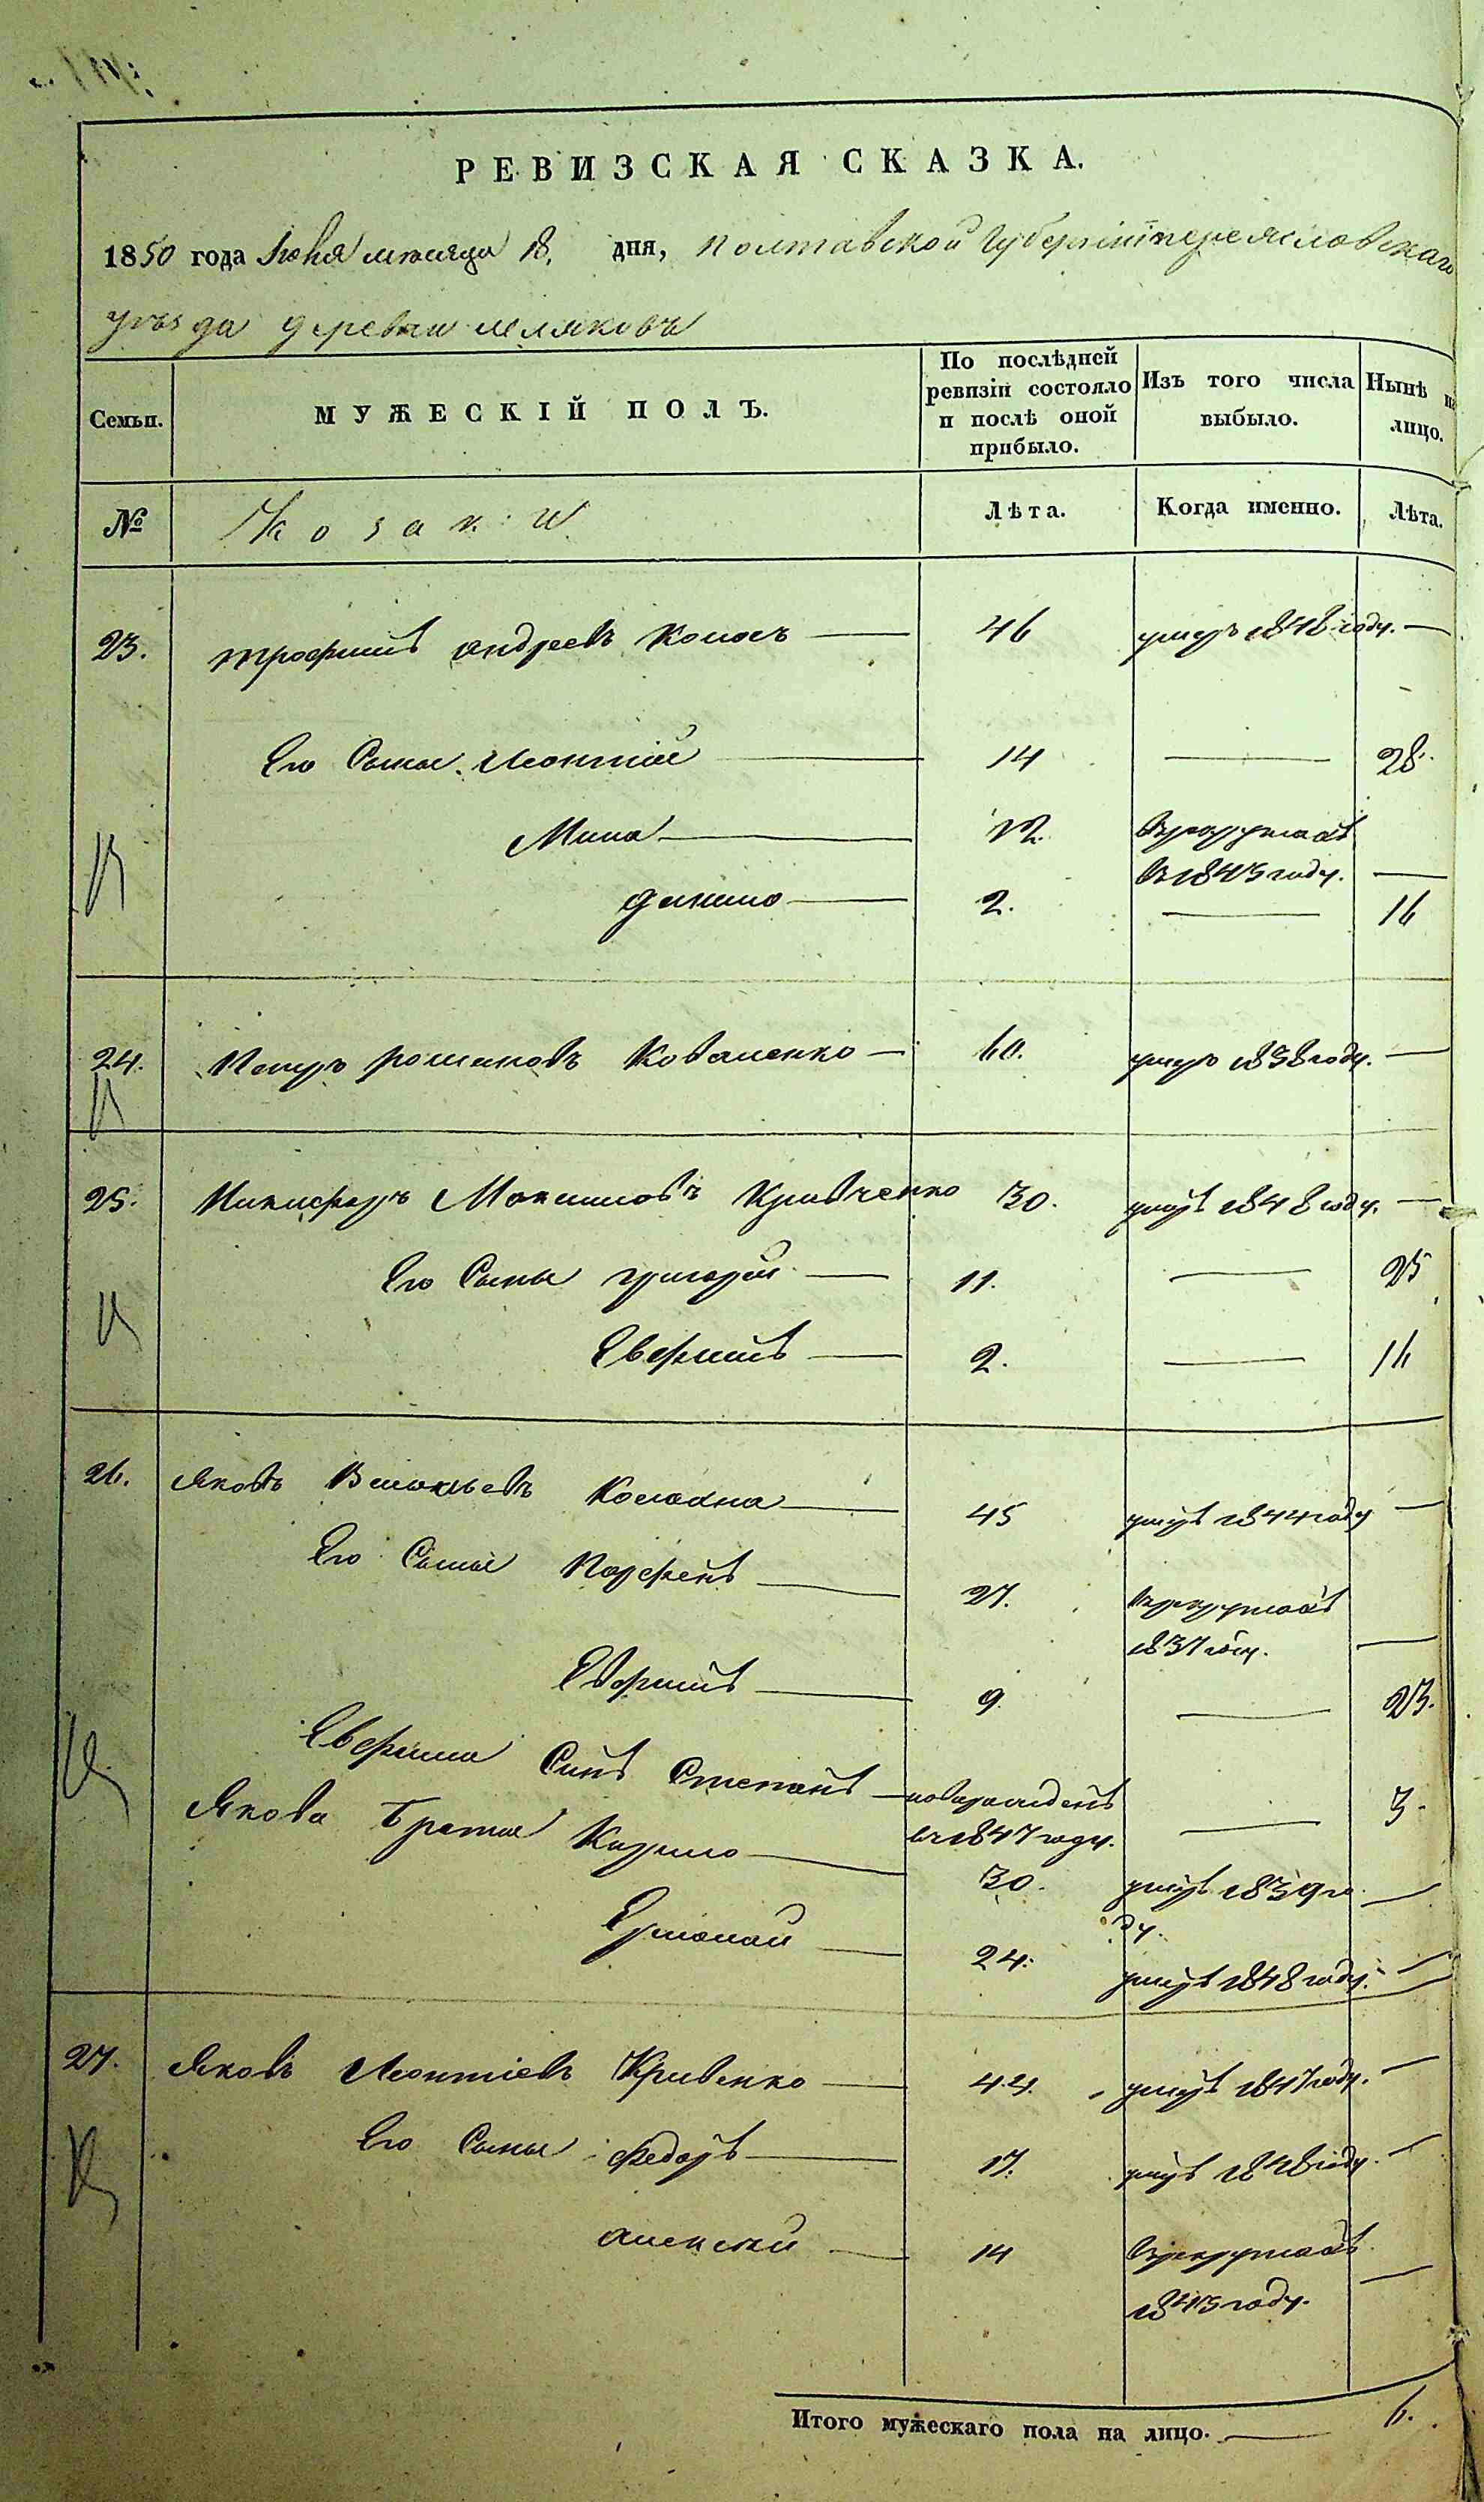 РЕВИЗСКАЯ СКАЗКА.
1850 года Июня месяца 18. дня, Полтавской Губернiи переясловскаго
уѣзда деревни
Семьи.
МУЖЕСКІЙ ПОЛЪ.
По послѣдней ревизіи состояло и послѣ оной прибыло.
Изъ того числа выбыло.
Нынѣ на лицо.
№
Козаки
Лѣта.
Когда именно.
Лѣта.
23. трофимъ андреевъ 46 умеръ 1848 году. —
Его Сыны Леонтiй 14 — 28.
Мина 12. Врекрутахъ
в 1845 году. —
данило 2. — 16
24. Петръ романовъ Коваленко — 60. умеръ 1838 году. —
25. Никифоръ Максимовъ Кривченко 30. умеръ 1848 году. —
Его Сыны григорiй — 11. — 25
Евфимъ — 2. — 16
26. Яковъ Васильевъ 45 умеръ 1844 году —
Его Сыны Парфенъ 27. Врекрутахъ
1837 году. —
Евфимъ 9. — 23.
Евфима Синъ Степанъ — новорожденъ — 3.
в 1847 году.
Якова Братья Кирило 30. умеръ 1839 го
ду. —
Ермолай 24. умеръ 1848 году. —
27. Яковъ Леонтiевъ Кривенко 44. умеръ 1847 году. —
Его Сыны федоръ 17. умеръ 1848 году. —
алексей 14 Врекрутахъ
1845 году. —
Итого мужескаго пола на лицо. — 6.